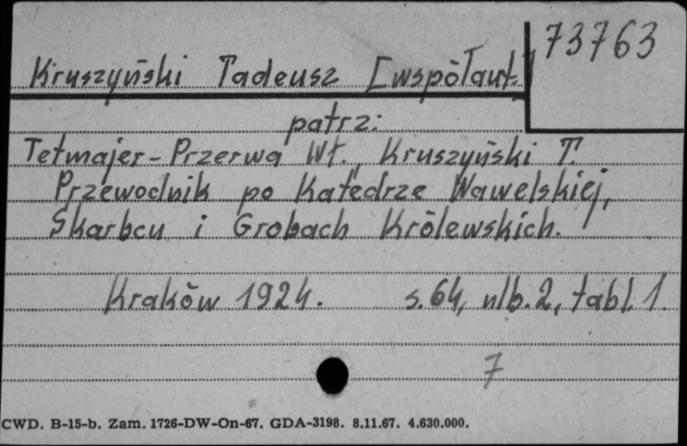 73763
Kruszyński Tadeusz [współaut.]
patrz:
Tetmajer-Przerwa Wł., Kruszyński T.
Przewodnik po Katedrze Wawelskiej,
Skarbcu i Grobach Królewskich.
Kraków 1924. s. 64, nlb. 2, tabl. 1.
7
CWD. B-15-b. Zam. 1726-DW-On-67. GDA-3198. 8.11.67. 4.630.000.